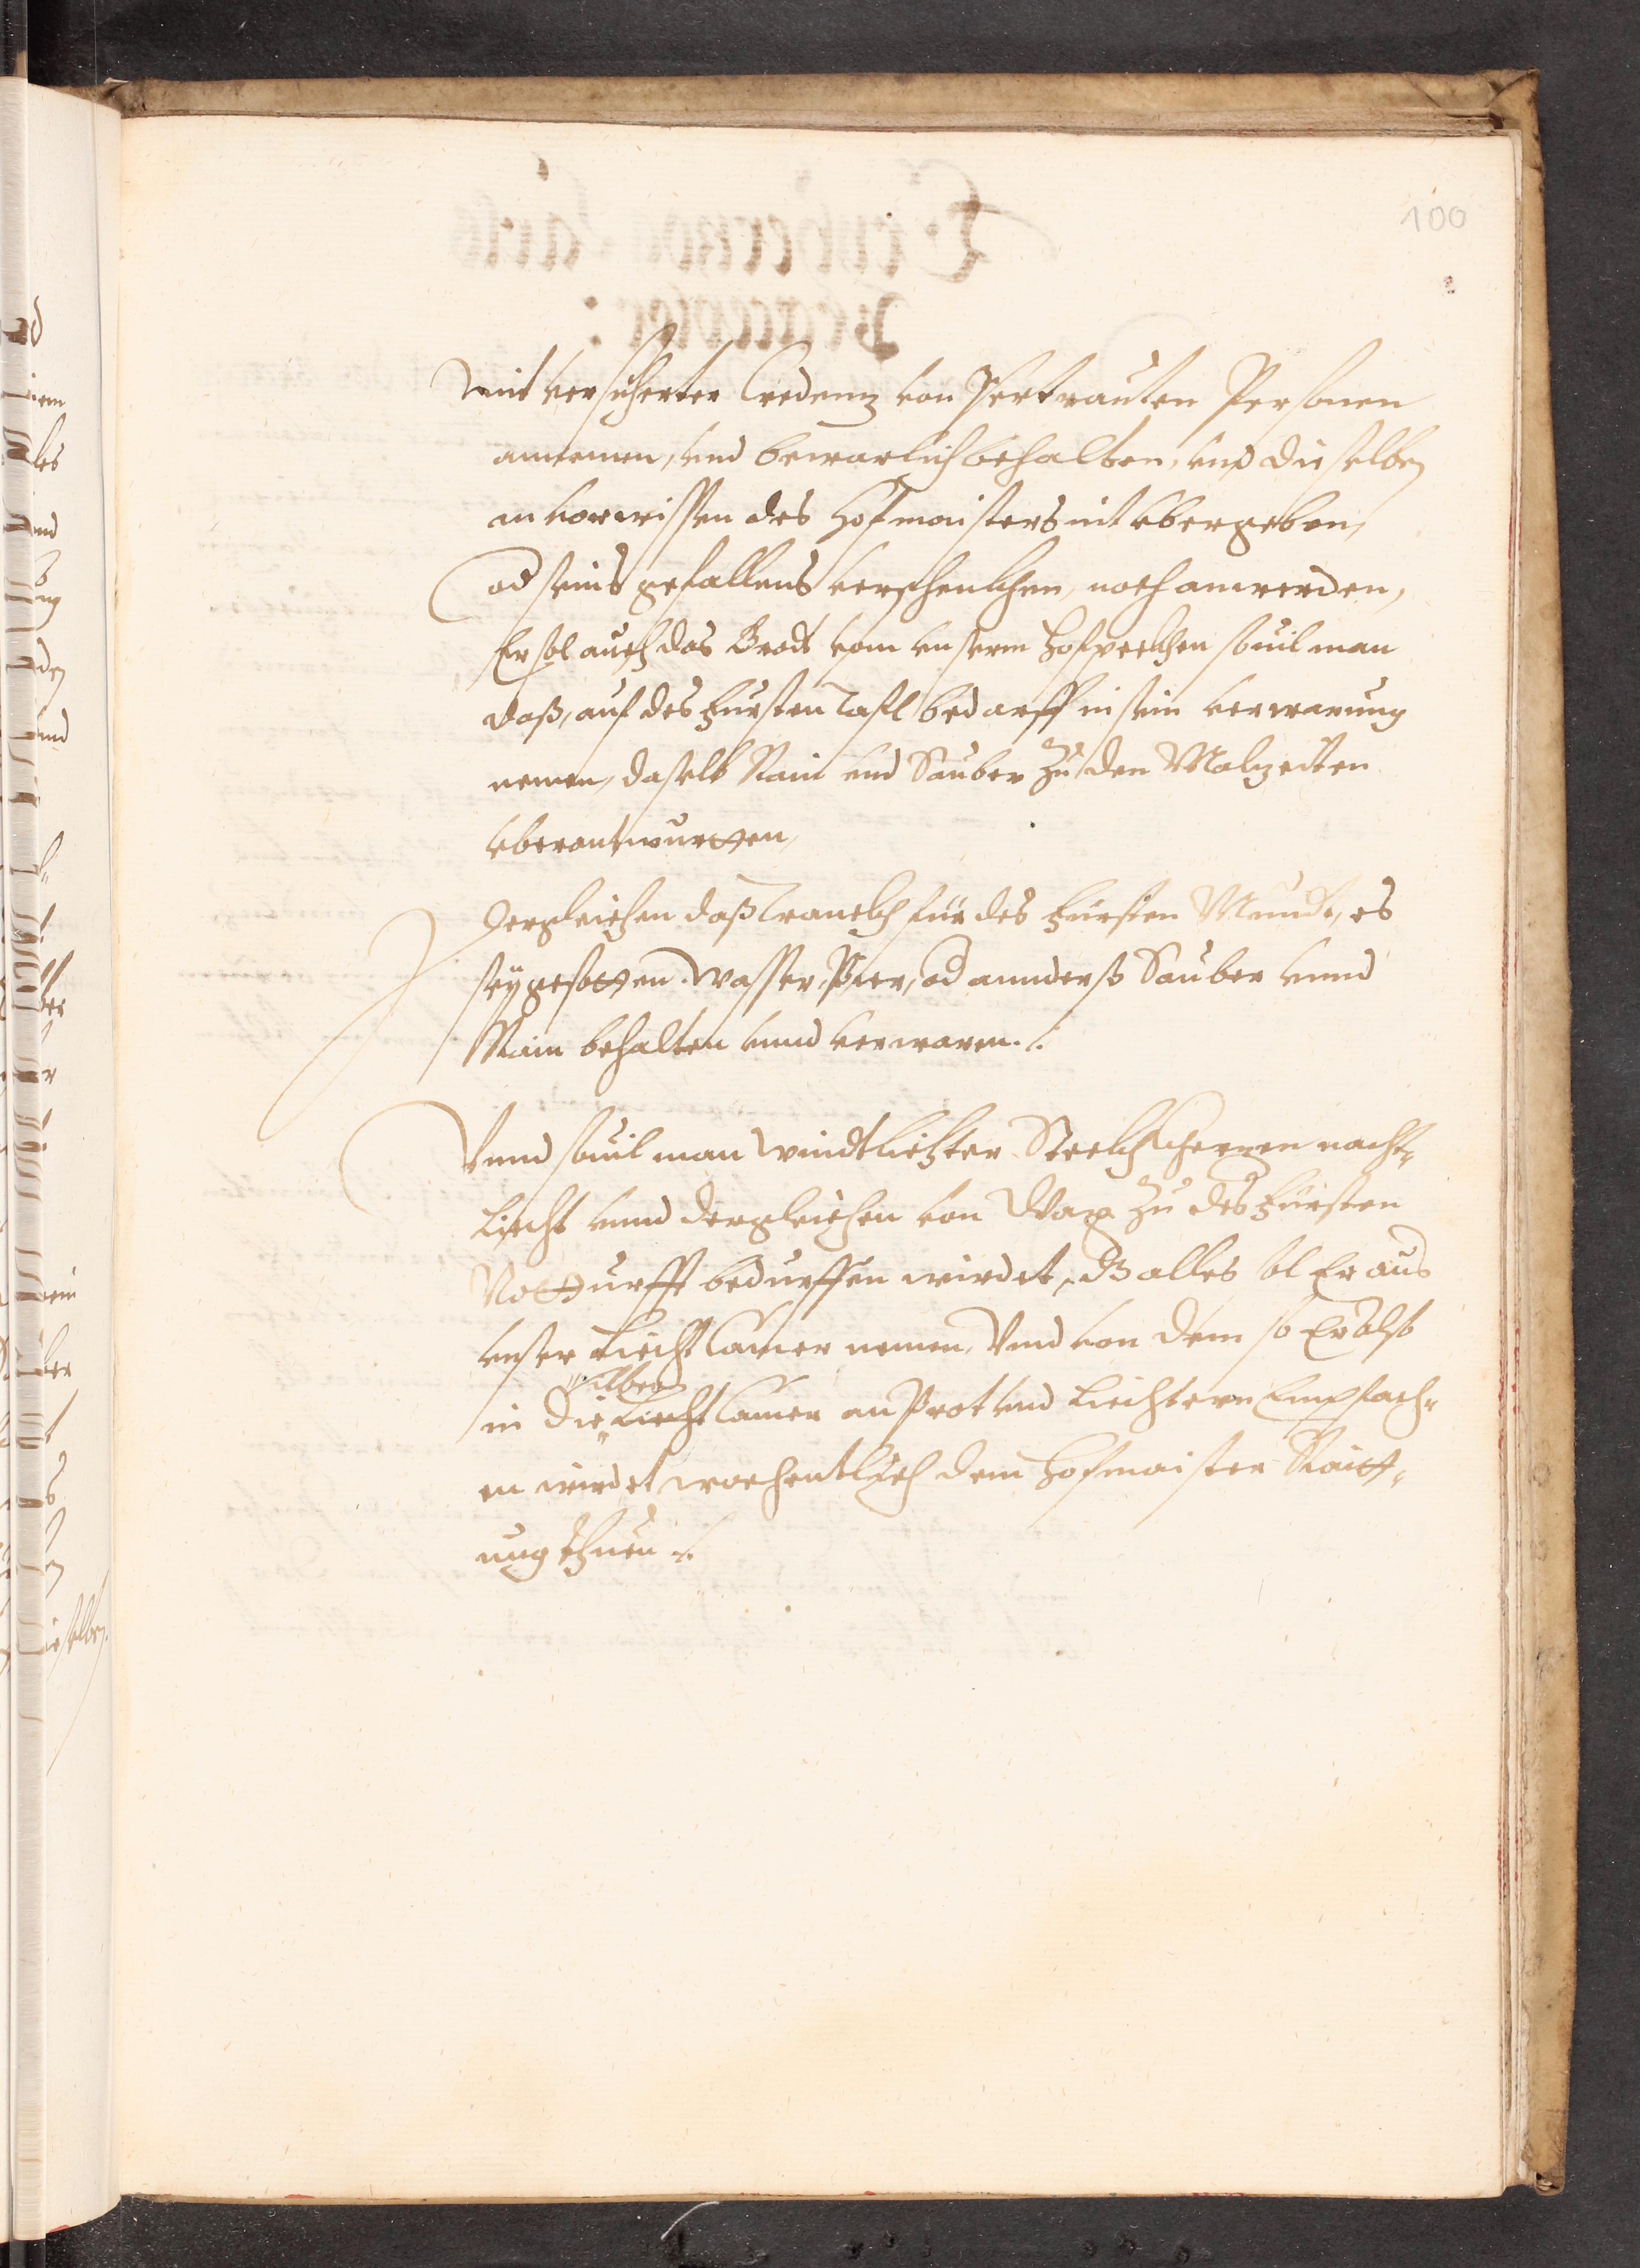 100
mit versicherter Credenz von Vertrauten Personen
annemen, vnd bewarlich behalten, vnd dieselben
on vorwissen des Hofmaisters nit vbergeben,
od seins gefallens verschenckhen, noch anwerden,
Er sol auch das Brodt vom vnserm Hofpeckhen souil man
daß, auf des Fürsten Tafl bedarff in sein verwarung
nemen, dasselb Rain vnd Sauber zu den Malzeiten
vberantwurtten,
Dergleichen daß Tranckh für des Fürsten Mundt, es
sey gesotten Wasser, Pier, od annderß Sauber vnnd
Rain behalten vnnd verwaren ./.
Vnnd souil man Windtliechter Steckkhertzen nacht-
Liecht vnnd dergleichen von Wax zu des Fürsten
Notturfft bedurffen wirdet, Dß alles sol Er aus
vnser Liecht Camer nemen, Vnd von dem so Er also
Silber
in die Liecht Camer an Prot vnd Liechtern Empfach-
en wirdet wochentlich dem Hofmaister Raitt-
ung thuen ./.